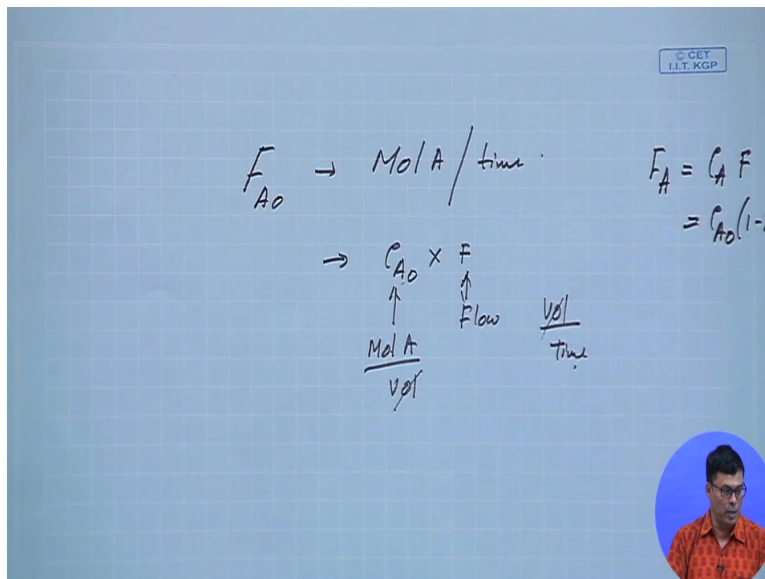 © CET
I.I.T. KGP
F_A0 → Mol A / time
F_A = C_A F
= C_A0 (1-
→ C_A0 × F
Flow
Vol
Time
Mol A
Vol